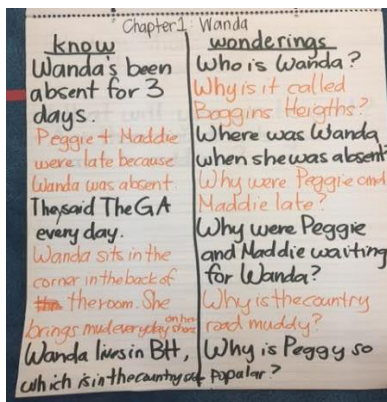 Chapter 1: Wanda
know
Wanda's been
absent for 3
days.
Peggie + Maddie
were late because
Wanda was absent.
They said The GA
every day.
Wanda sits in the
corner in the back of
the room. She
brings mud everyday on her shoes
Wanda lives in BH,
which is in the country
wonderings
Who is Wanda?
Why is it called
Boggins Heigths?
Where was Wanda
when she was absent?
Why were Peggie and
Maddie late?
Why were Peggie
and Maddie waiting
for Wanda?
Why is the country
road muddy?
Why is Peggy so
popalar?